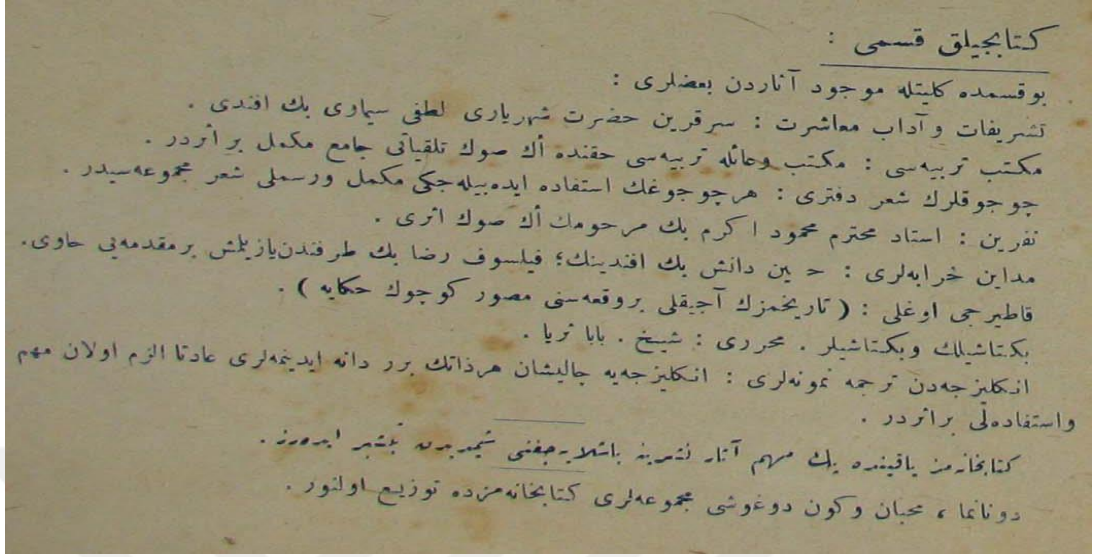 كتابجيلق قسمى :
بوقسمده كليتله موجود آثاردن بعضلرى :
تشريفات و آداب معاشرت : سرقرين حضرت شهريارى لطفى سيماوى بك افندى .
مكتب تربيه‌سى : مكتب وعائله تربيه‌سى حقنده أك صوك تلقياتى جامع مكمل بر أثردر .
چوجوقلرك شعر دفترى : هرچوجوغك استفاده ايده‌بيله‌جكى مكمل ورسملى شعر مجموعه‌سيدر .
نفرين : استاد محترم محمود اكرم بك مرحومك أك صوك اثرى .
مداين خرابه‌لرى : حسين دانش بك افندينك؛ فيلسوف رضا بك طرفندن‌يازيلمش برمقدمه‌يى حاوى.
قاطيرجى اوغلى : ( تاريخمزك آجيقلى بروقعه‌سنى مصور كوچوك حكايه ) .
بكتاشيلك وبكتاشيلر . محررى : شيخ . بابا ثريا .
انكليزجه‌دن ترجمه نمونه‌لرى : انكليزجه‌يه چاليشان هرذاتك برر دانه ايدينمه‌لرى عادتا الزم اولان مهم
واستفاده‌لى براثردر .
كتابخانه‌مز ياقينده پك مهم آثار نشرينه باشلايه‌جغنى شيمديدن تبشير ايده‌رز .
دونانما ، محبان وكون دوغوشى مجموعه‌لرى كتابخانه‌مزده توزيع اولنور .